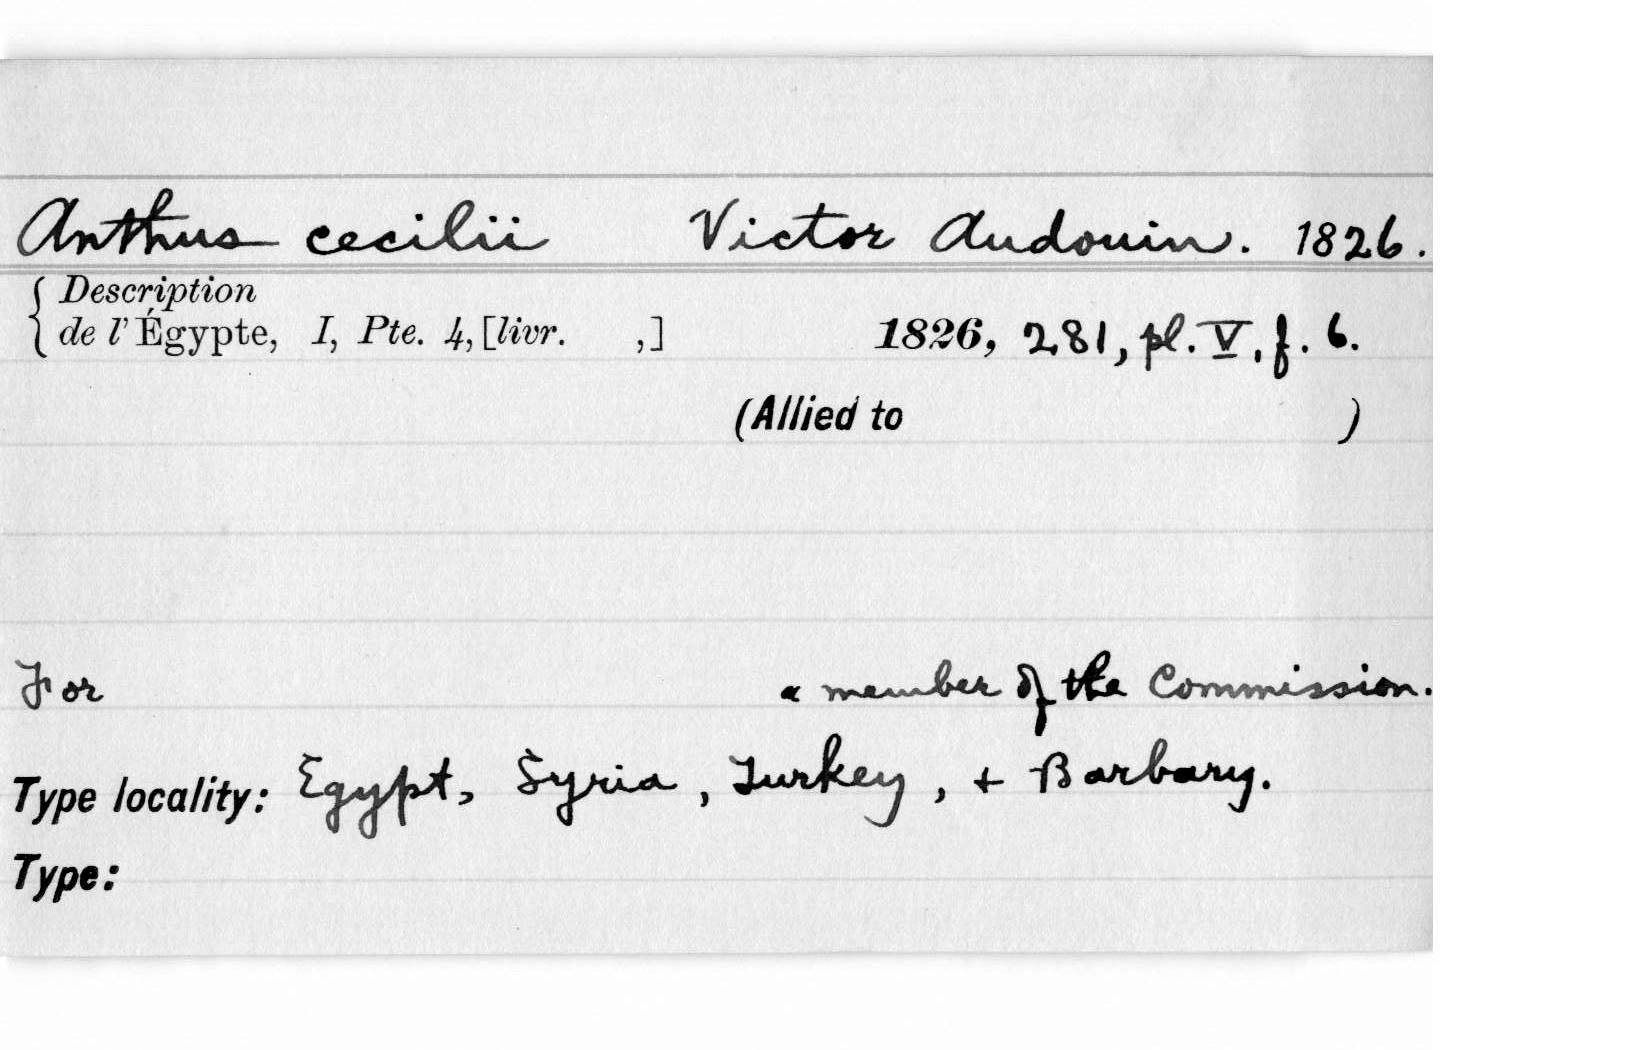 Anthus cecilii Victor Audouin. 1826.
{ Description
de l' Égypte, I, Pte. 4, [livr. ,] 1826, 281, pl. V, f. 6.
(Allied to )
For a member of the Commission.
Type locality: Egypt, Syria, Turkey, + Barbary.
Type: